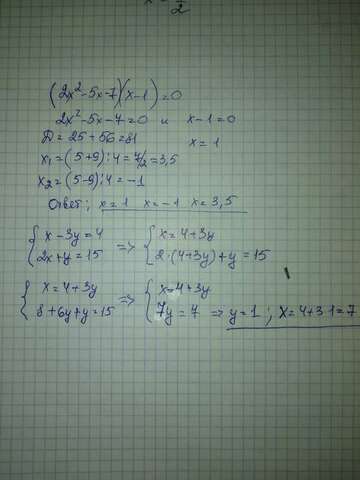 2
(2x²-5x-7)(x-1)=0
2x²-5x-7=0 и x-1=0
D=25+56=81 x=1
x₁=(5+9):4=7/2=3,5
x₂=(5-9):4=-1
Ответ: x=1 x=-1 x=3,5
{ x-3y=4 => { x=4+3y
{ 2x+y=15 { 2·(4+3y)+y=15
{ x=4+3y => { x=4+3y
{ 8+6y+y=15 { 7y=7 => y=1 ; x=4+3·1=7